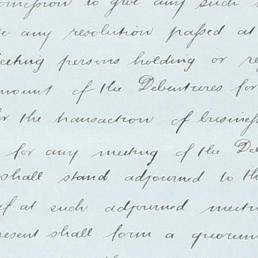 omission to give any such
any resolution passed at
eeting persons holding or re
mount of the Debentures for
or the transaction of business
for any meeting of the De
shall stand adjourned to th
if at such adjourned meetin
resent shall form a quorum